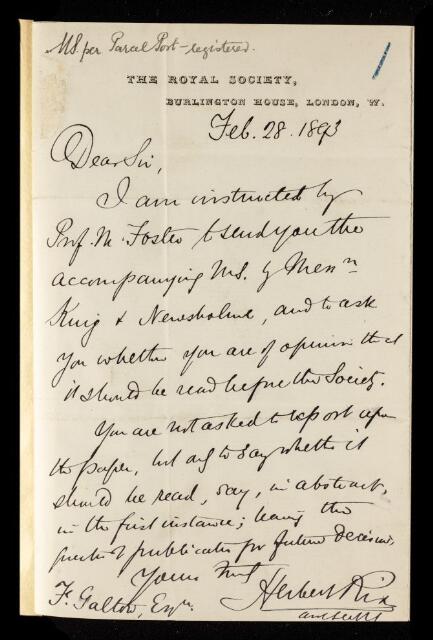 MS. per Parcel Post - registered.
THE ROYAL SOCIETY,
BURLINGTON HOUSE, LONDON, W.
Feb. 28. 1893
Dear Sir,
I am instructed by
Prof. M. Foster to send you the
accompanying MS. by Messrs
King & Newsholme, and to ask
you whether you are of opinion that
it should be read before the Society.
You are not asked to report upon
the paper, but only to say whether it
should be read, say, in abstract,
in the first instance; leaving the
question of publication for future decision.
Yours truly
Herbert Rix
F. Galton, Esqre.